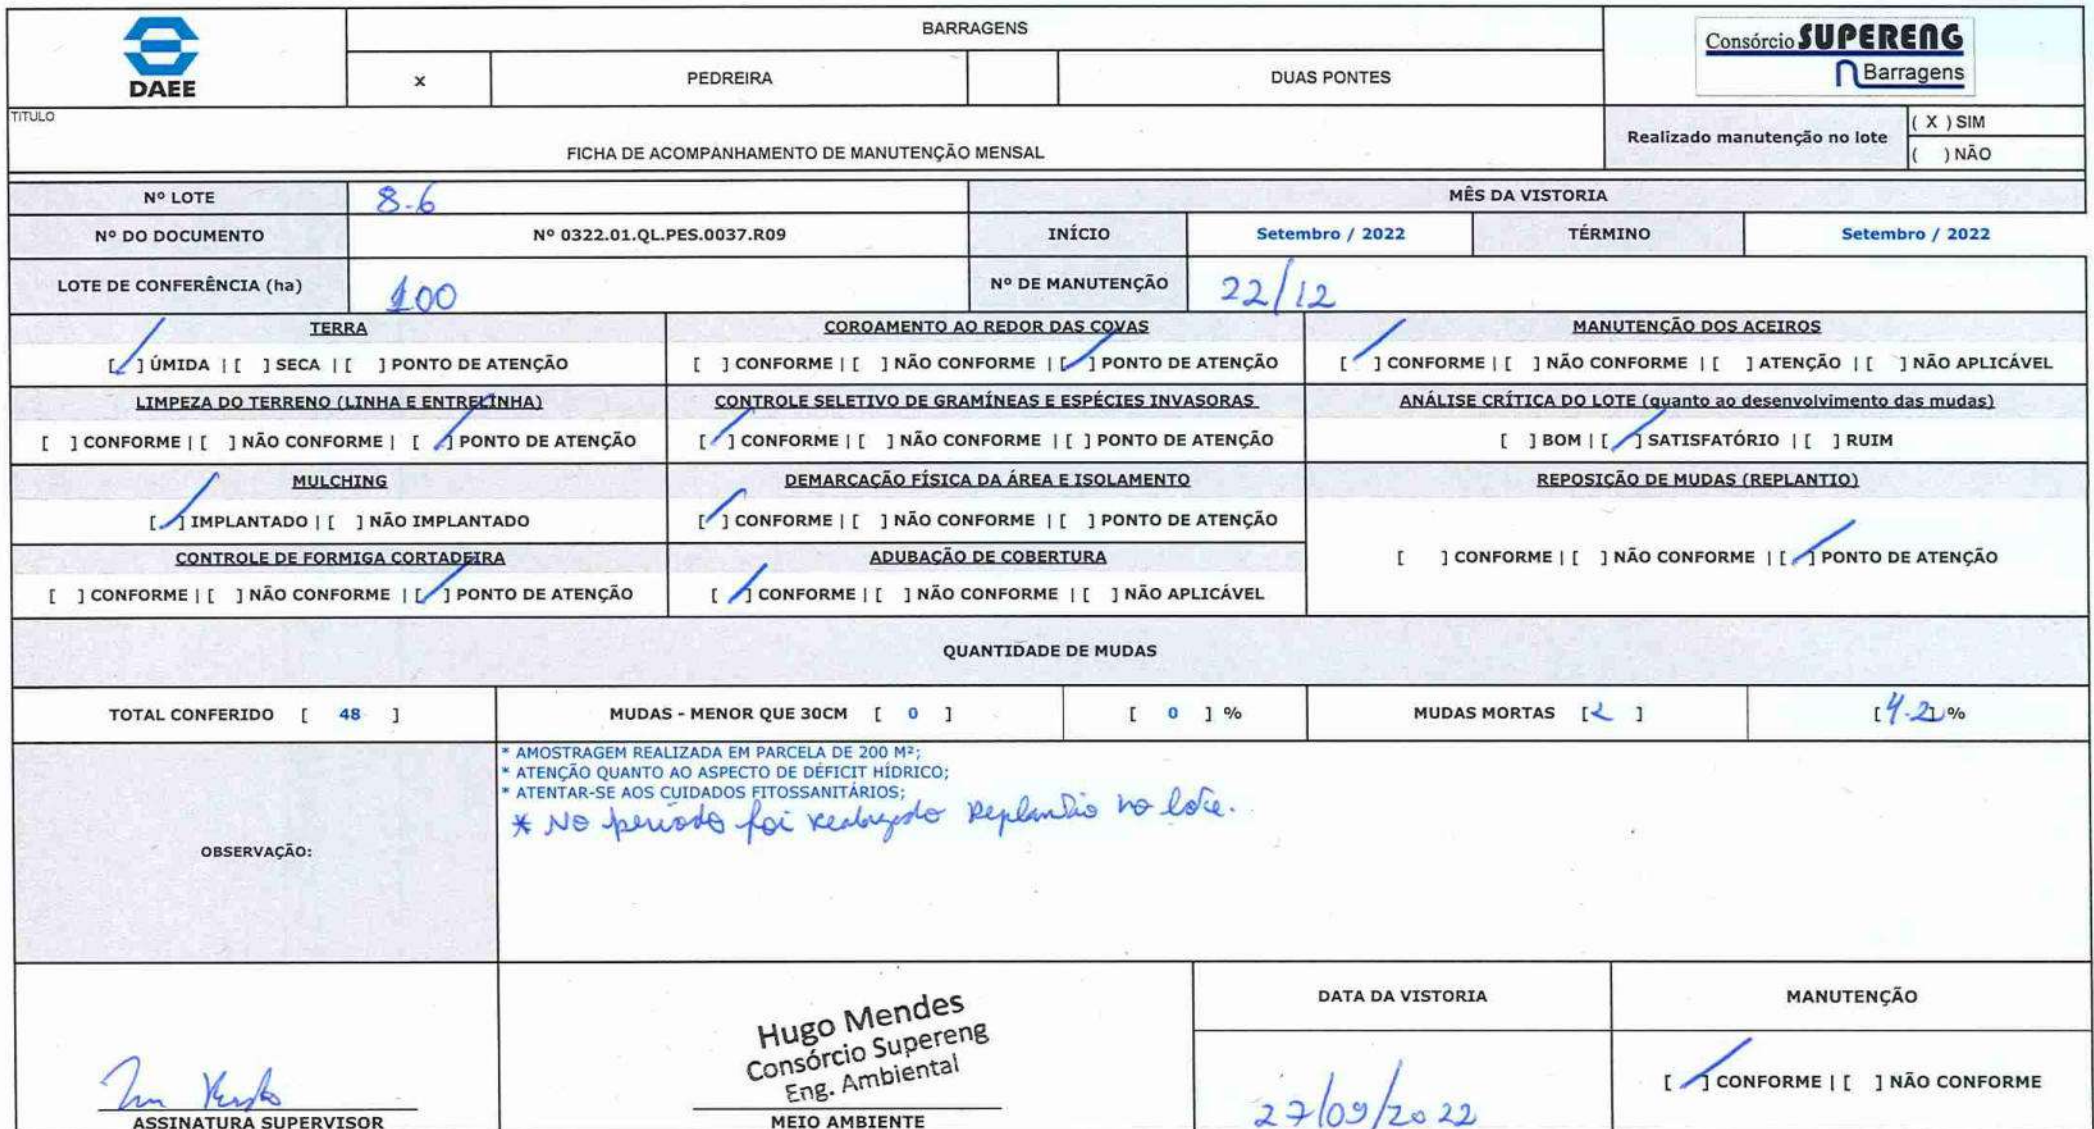 DAEE
BARRAGENS
x PEDREIRA DUAS PONTES
Consórcio SUPERENG
Barragens
TITULO
FICHA DE ACOMPANHAMENTO DE MANUTENÇÃO MENSAL
Realizado manutenção no lote
( X ) SIM
( ) NÃO
Nº LOTE 8.6 MÊS DA VISTORIA
Nº DO DOCUMENTO Nº 0322.01.QL.PES.0037.R09 INÍCIO Setembro / 2022 TÉRMINO Setembro / 2022
LOTE DE CONFERÊNCIA (ha) 100 Nº DE MANUTENÇÃO 22/12
TERRA
[/] ÚMIDA | [ ] SECA | [ ] PONTO DE ATENÇÃO
COROAMENTO AO REDOR DAS COVAS
[ ] CONFORME | [ ] NÃO CONFORME | [/] PONTO DE ATENÇÃO
MANUTENÇÃO DOS ACEIROS
[/] CONFORME | [ ] NÃO CONFORME | [ ] ATENÇÃO | [ ] NÃO APLICÁVEL
LIMPEZA DO TERRENO (LINHA E ENTRELINHA)
[ ] CONFORME | [ ] NÃO CONFORME | [/] PONTO DE ATENÇÃO
CONTROLE SELETIVO DE GRAMÍNEAS E ESPÉCIES INVASORAS
[/] CONFORME | [ ] NÃO CONFORME | [ ] PONTO DE ATENÇÃO
ANÁLISE CRÍTICA DO LOTE (quanto ao desenvolvimento das mudas)
[ ] BOM | [/] SATISFATÓRIO | [ ] RUIM
MULCHING
[/] IMPLANTADO | [ ] NÃO IMPLANTADO
DEMARCAÇÃO FÍSICA DA ÁREA E ISOLAMENTO
[/] CONFORME | [ ] NÃO CONFORME | [ ] PONTO DE ATENÇÃO
REPOSIÇÃO DE MUDAS (REPLANTIO)
[ ] CONFORME | [ ] NÃO CONFORME | [/] PONTO DE ATENÇÃO
CONTROLE DE FORMIGA CORTADEIRA
[ ] CONFORME | [ ] NÃO CONFORME | [/] PONTO DE ATENÇÃO
ADUBAÇÃO DE COBERTURA
[/] CONFORME | [ ] NÃO CONFORME | [ ] NÃO APLICÁVEL
QUANTIDADE DE MUDAS
TOTAL CONFERIDO [ 48 ] MUDAS - MENOR QUE 30CM [ 0 ] [ 0 ] % MUDAS MORTAS [ 2 ] [ 4.2 ] %
OBSERVAÇÃO:
* AMOSTRAGEM REALIZADA EM PARCELA DE 200 M²;
* ATENÇÃO QUANTO AO ASPECTO DE DÉFICIT HÍDRICO;
* ATENTAR-SE AOS CUIDADOS FITOSSANITÁRIOS;
* No período foi realizado Replantio no lote.
ASSINATURA SUPERVISOR
Hugo Mendes
Consórcio Supereng
Eng. Ambiental
MEIO AMBIENTE
DATA DA VISTORIA
27/09/2022
MANUTENÇÃO
[/] CONFORME | [ ] NÃO CONFORME